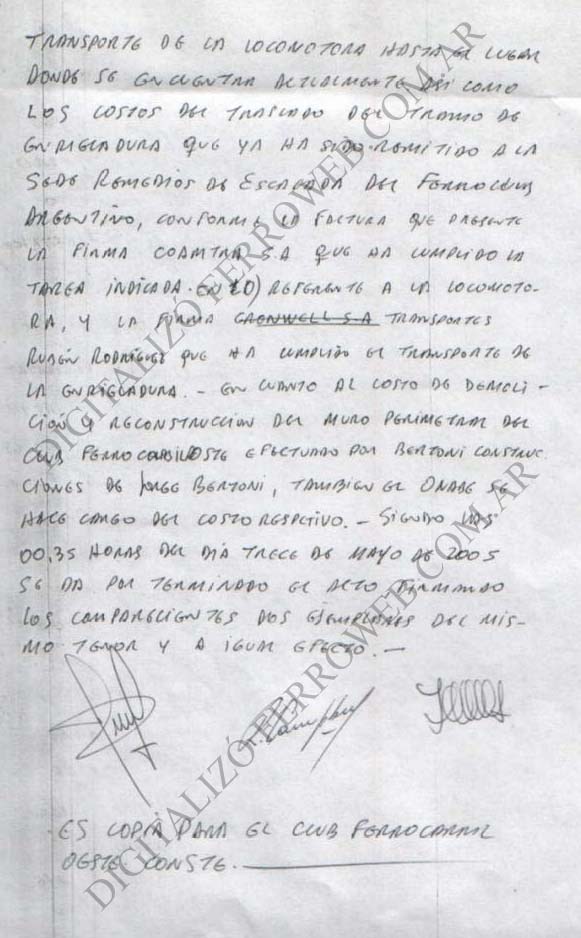 TRANSPORTE DE LA LOCOMOTORA HASTA EL LUGAR
DONDE SE ENCUENTRA ACTUALMENTE ASI COMO
LOS COSTOS DEL TRASLADO DEL TRAMO DE
ENRIELADURA QUE YA HA SIDO REMITIDO A LA
SEDE REMEDIOS DE ESCALADA DEL FERROCLUB
ARGENTINO, CONFORME LA FACTURA QUE PRESENTE
LA FIRMA COAMTRA S.A QUE HA CUMPLIDO LA
TAREA INDICADA EN REFERENTE A LA LOCOMOTO-
RA, Y LA FIRMA GREENWELL S.A TRANSPORTES
RUBÉN RODRÍGUEZ QUE HA CUMPLIDO EL TRANSPORTE DE
LA ENRIELADURA. - EN CUANTO AL COSTO DE DEMOLI-
CIÓN Y RECONSTRUCCION DEL MURO PERIMETRAL DEL
CLUB FERRO OESTE EFECTUADO POR BERTONI CONSTRUC
CIONES DE JORGE BERTONI, TAMBIEN EL ONABE SE
HACE CARGO DEL COSTO RESPETIVO. - SIENDO LAS
00,35 HORAS DEL DÍA TRECE DE MAYO DE 2005
SE DA POR TERMINADO EL ACTO FIRMANDO
LOS COMPARECIENTES DOS EJEMPLARES DEL MIS-
MO TENOR Y A IGUAL EFECTO. -
ES COPIA PARA EL CLUB FERROCARRIL
OESTE CONSTE.
DIGITALIZÓ FERROWEB.COM.AR
DIGITALIZÓ FERROWEB.COM.AR